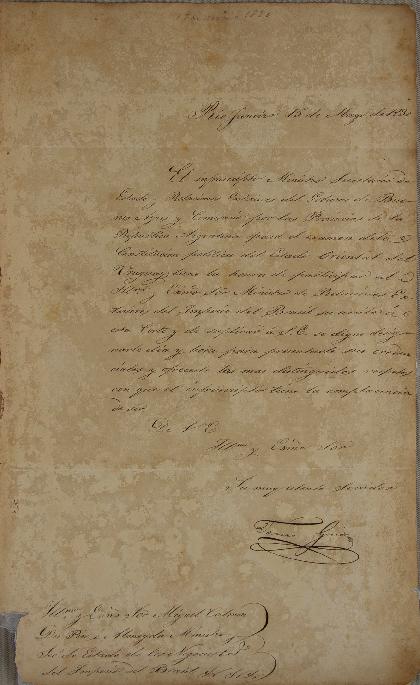 Rio Janeiro 15 de Mayo de 1830
El infrascripto Ministro Secretario de
Estado y Relaciones Exteriores del Gobierno de Bue-
nos Ayres y Comisario por las Provincias de la
Republica Argentina para el examen de la
Constitucion politica del Estado Oriental del
Uruguay, tiene la honra de participar al
Illmo y Exmo Sor Ministro de Relaciones Ex-
del Imperio del Brasil su á
esta Corte y de suplicar á S.E. se digne desig-
narle dia y hora para presentarle sus creden-
ciales y ofrecerle los mas distinguidos respetos
con que el infrascripto tiene la complacencia
de ser
De V.E.
Illmo y Exmo Sor
Su muy atento Servidor
Tomas Guido
Illmo y Exmo Sor Miguel Calmon
Du Pin é Almeyda Ministro y
Srio de Estado de los Negocios
del Imperio del Brasil